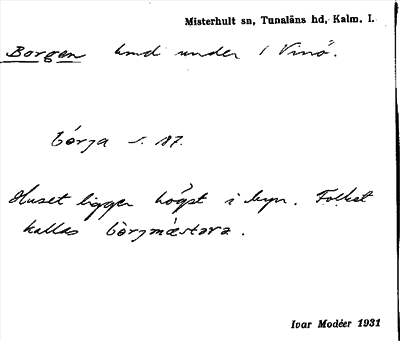 Misterhult sn, Tunaläns hd, Kalm. I.
Borgen hmd under 1 Vinö.
bórja s. 187.
Huset ligger högst i byn. Folket
kallas bòrjmástara.
Ivar Modéer 1931